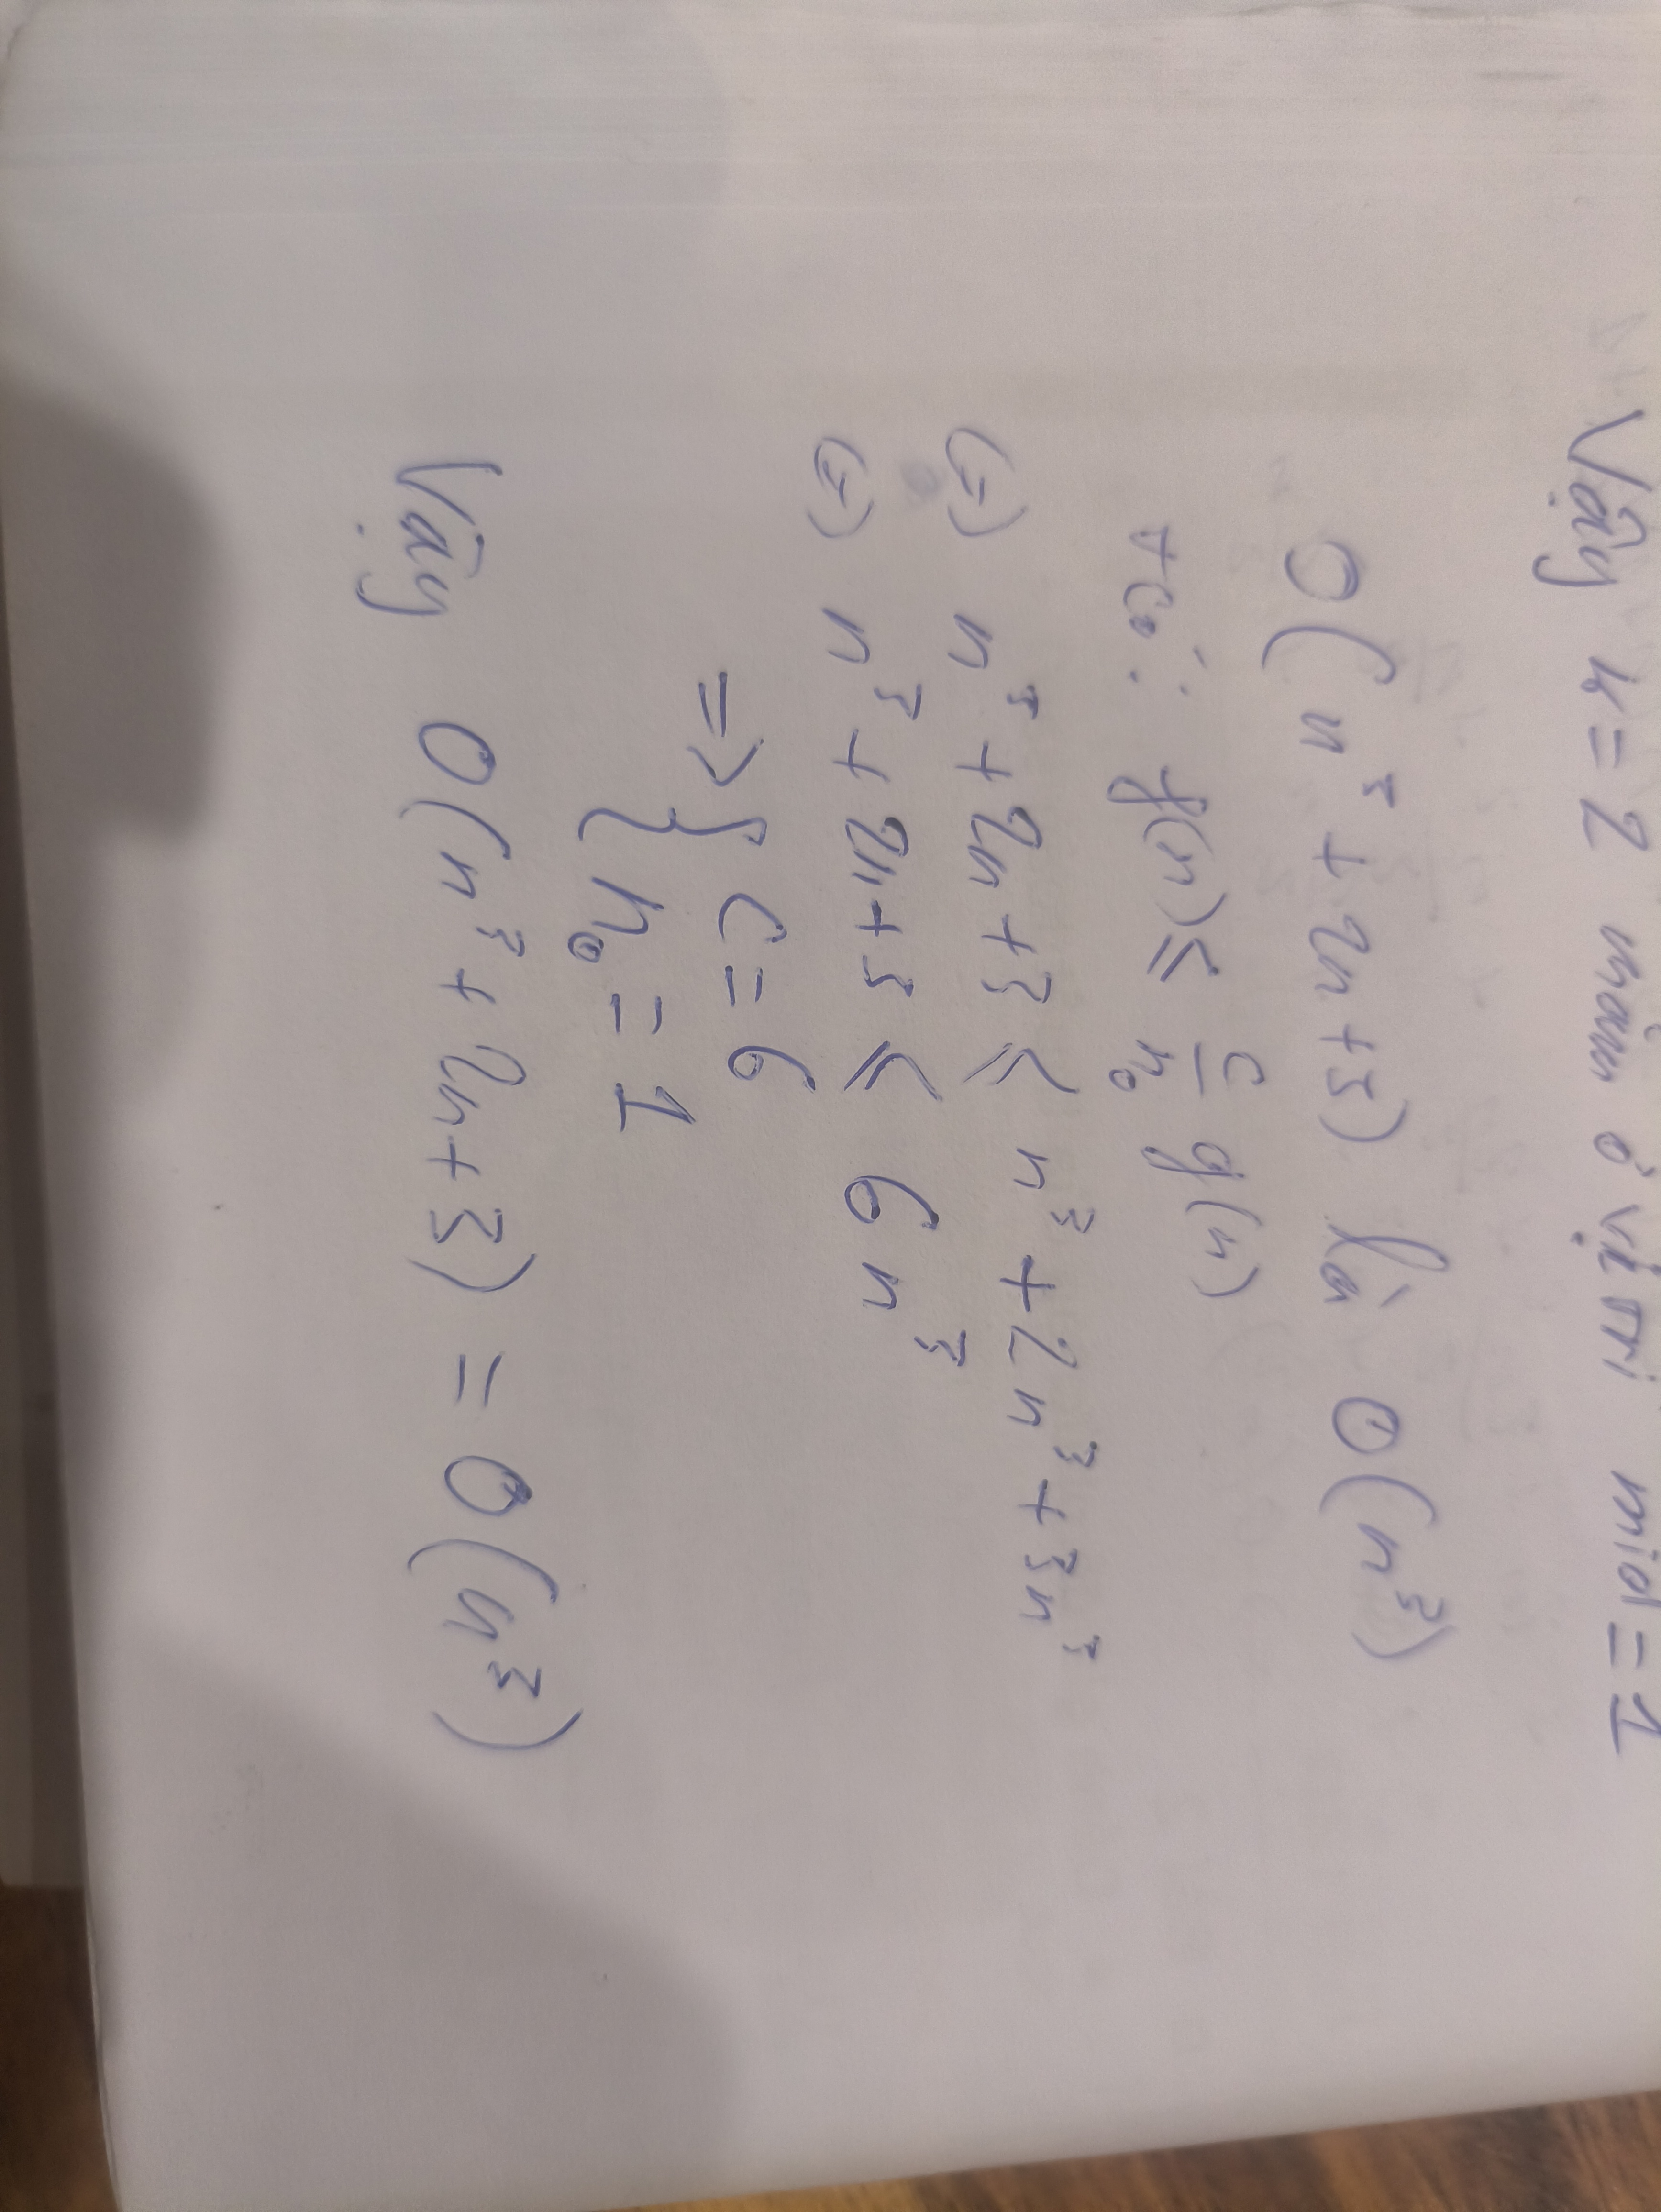 Vậy k = 2 nằm ở vị trí mid = 1
O(n³ + 2n + 3) là O(n³)
+ Có: f(n) ≤ c/n₀ g(n)
(=) n³ + 2n + 3 ≤ n³ + 2n³ + 3n³
(=) n³ + 2n + 3 ≤ 6n³
=> { c = 6
n₀ = 1
Vậy O(n³ + 2n + 3) = O(n³)